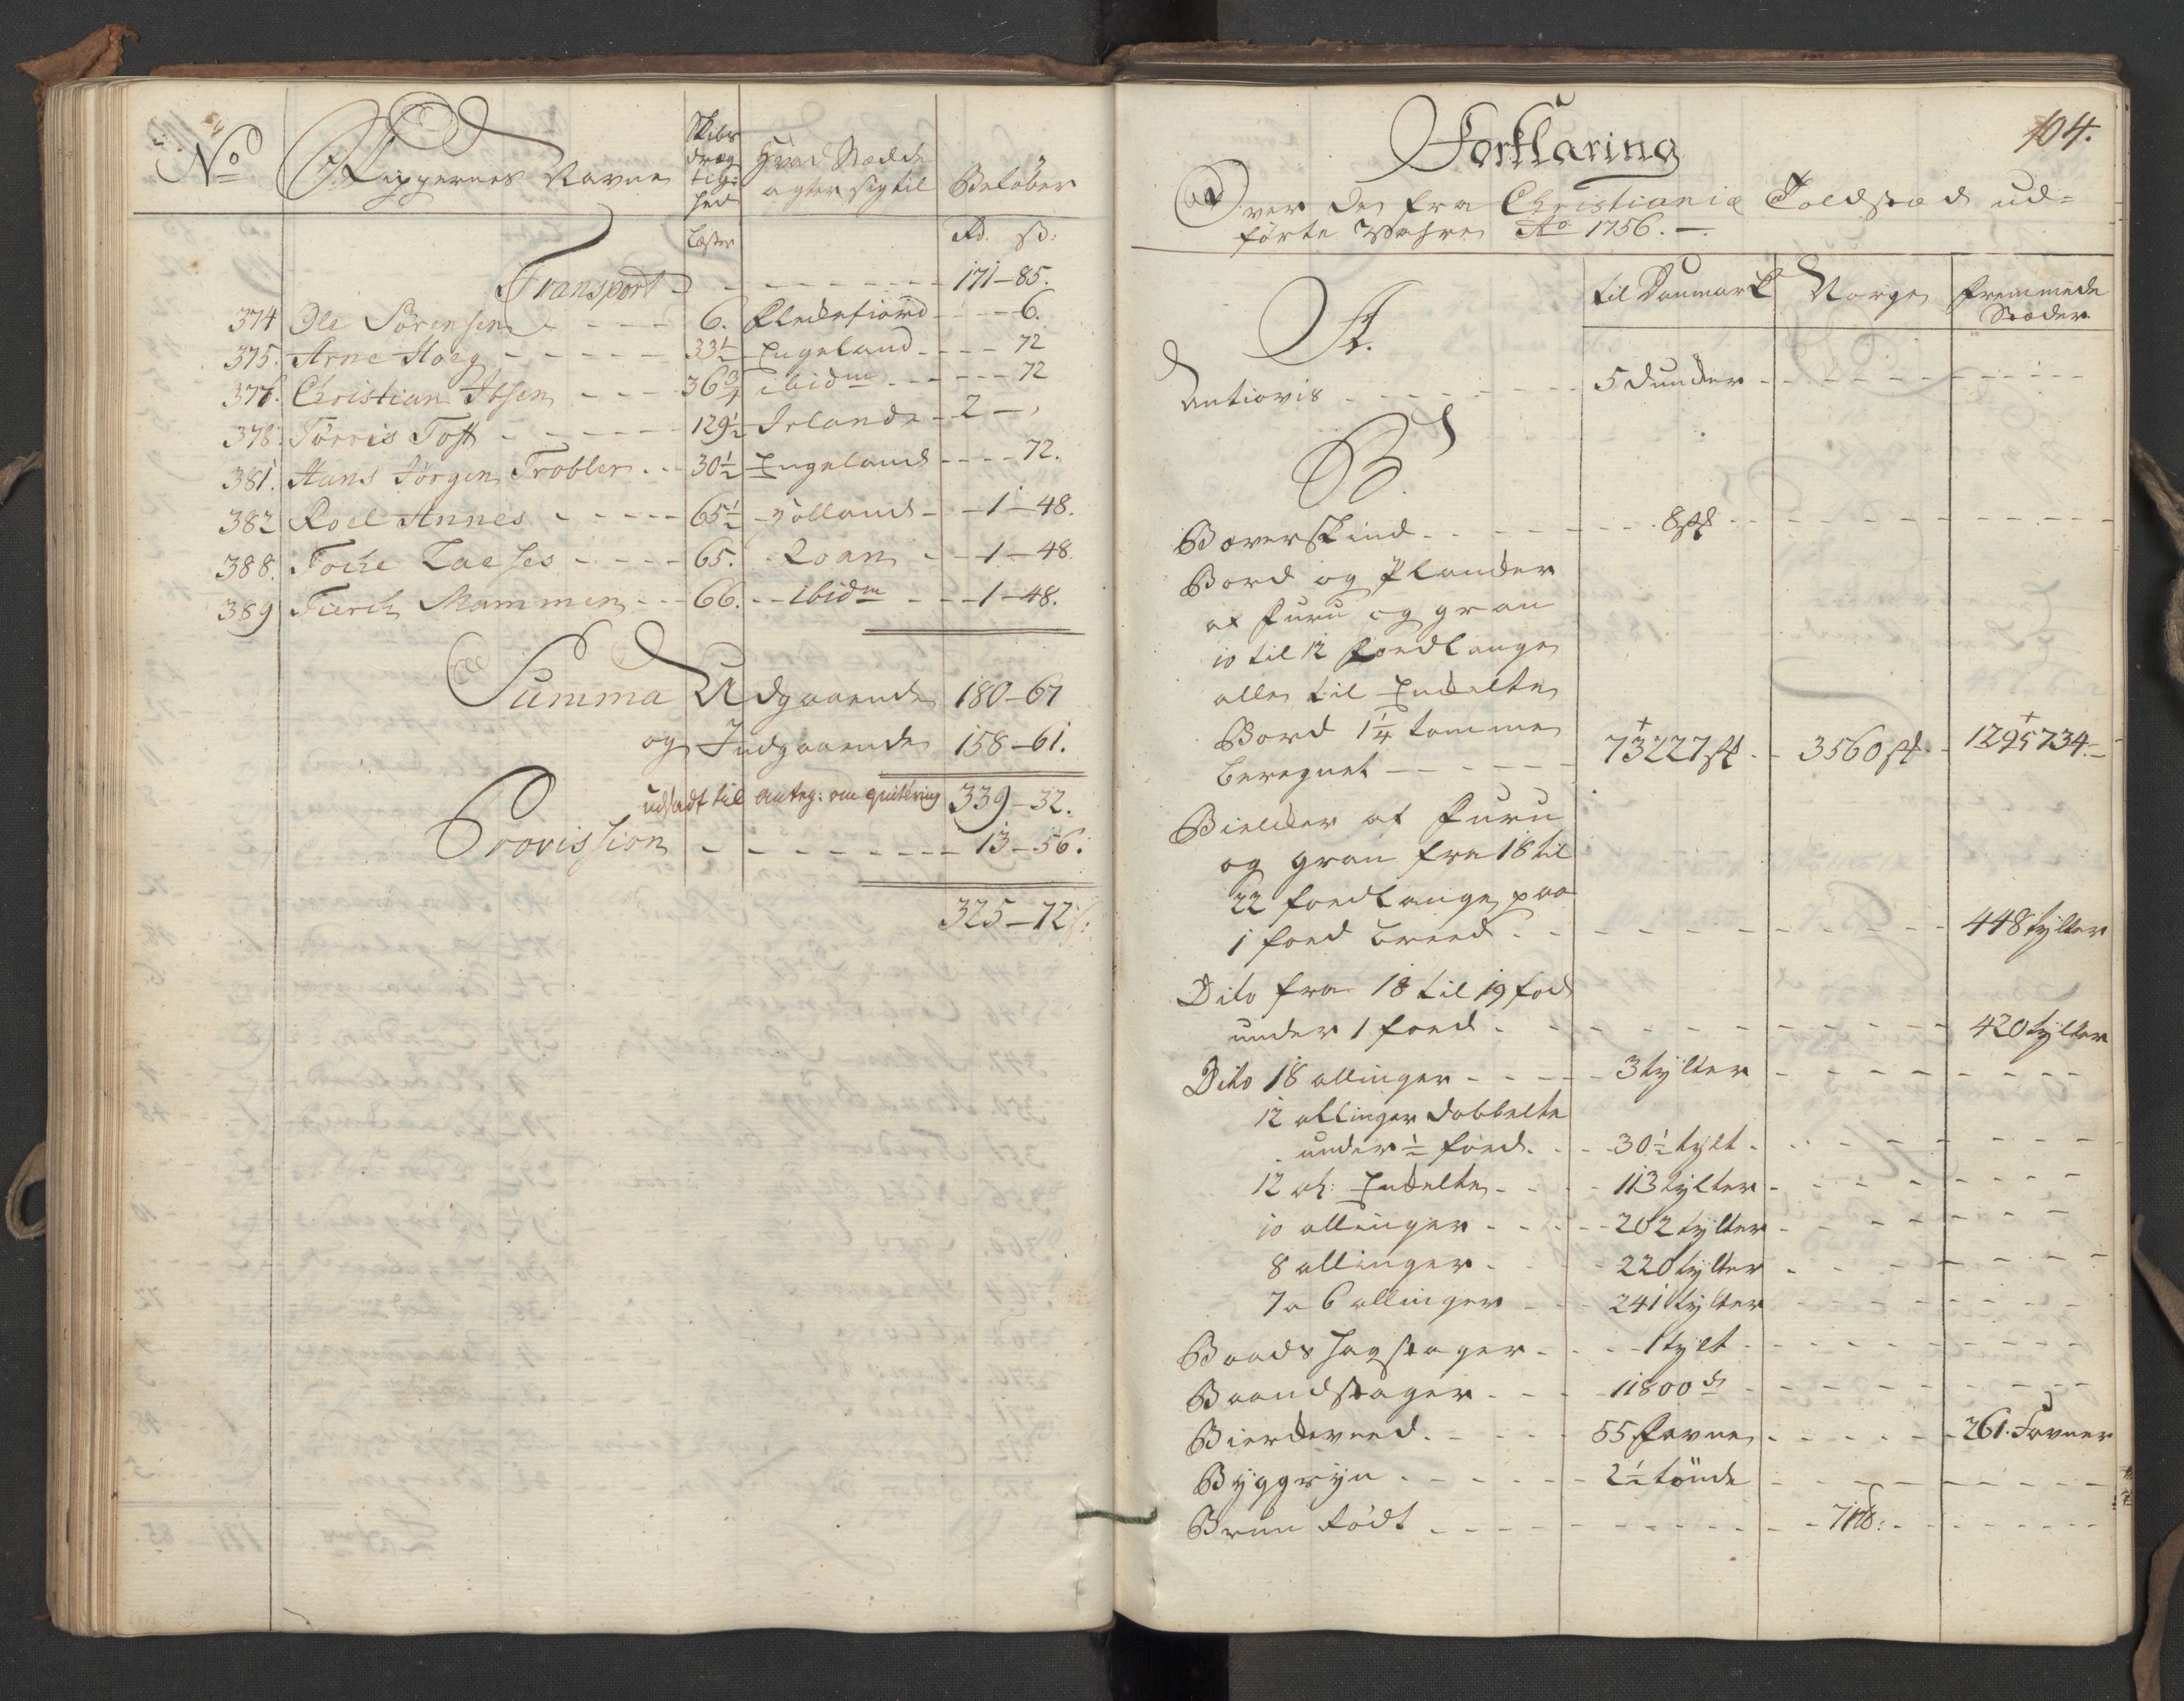 No Skippernes Navne Skibs dræg tig: hed Hvad Stædde agter sig til Beløber
Læster Rd. ß:
Transport - - - 171-85.
374 Ole Sörensen - - - 6. Fledefiord - - - 6.
375. Arne Hoeg - - - 33½ Engeland - - - 72
376. Christian Ibsen - - - 36¾ ibidm - - - 72
378. Törris Toft - - - 129½ Irland - 2 -
381. Hans Jörgen Trobler - - 30½ Engeland - - - 72.
382 Roel Annes - - - 65½ Holland - - 1-48.
388. Focke Laeses - - - 65. Roan - - 1-48
389 Tierck Mammen - - 66. - ibidm - - 1-48.
Summa Udgaaende 180-67
og Indgaaende 158-61.
udsadt til anteg: om quitering 339-32.
Provission - - - 13-56.
325-72ß:
104.
Forklaring
Over de fra Christiania Toldstæd ud=
förte Vahre Ao 1756. -
til Danmark Norge fremmede
Stæder
A.
Antiovis - - - 5 dunder - - -
B.
Bæverskind - - - 8 st - - -
Bord og Plancker
af Furu og gran
10 til 12 foed lange
alle til Enckelte
Bord 1¼ tomme
beregnet - - - 73227 st - - 3560 st. - 1295734.-
Bielcker af Furu
og gran fra 18 til
22 foed lange paa
1 foed breed - - - 448 tylter
Dito fra 18 til 19 fod
under 1 foed - - - 420 tylter
Dito 18 allinger - - - 3 tylter - - -
12 allinger dobbelte
under ½ foed. - - 30½ tylt - - -
12 al: Enckelte - - - 113 tylter - - -
10 allinger - - - 202 tylter - - -
8 allinger - - - 220 tylter - - -
7 a 6 allinger - - - 241 tylter - - -
Baads hagstager - - - 1 tylt - - -
Baandstager - - - 11800 d - - -
Bierckeveed - - - 55 favne - - - 261. Favner
Byggryn - - - 2½ tönde - - -
Brun Rödt - - - 71 lb: - - -